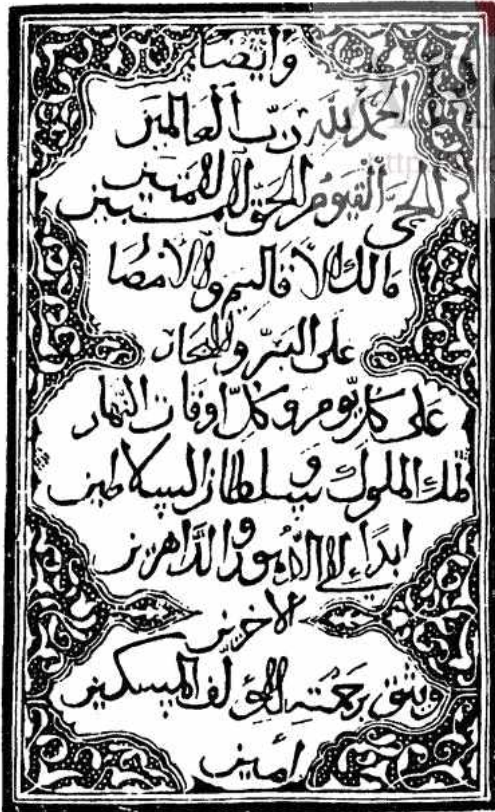 وايضا
الحمد لله رب العالمين
الحي القيوم الحق المبين
مالك الاقاليم والامصا
على البر والبحار
على كل يوم وكل اوقات النهار
ملك الملوك وسلطان السلاطين
ابداً الى الدهور والداهرين
الاخرين
ويثق برحمته المؤلف المسكين
امين